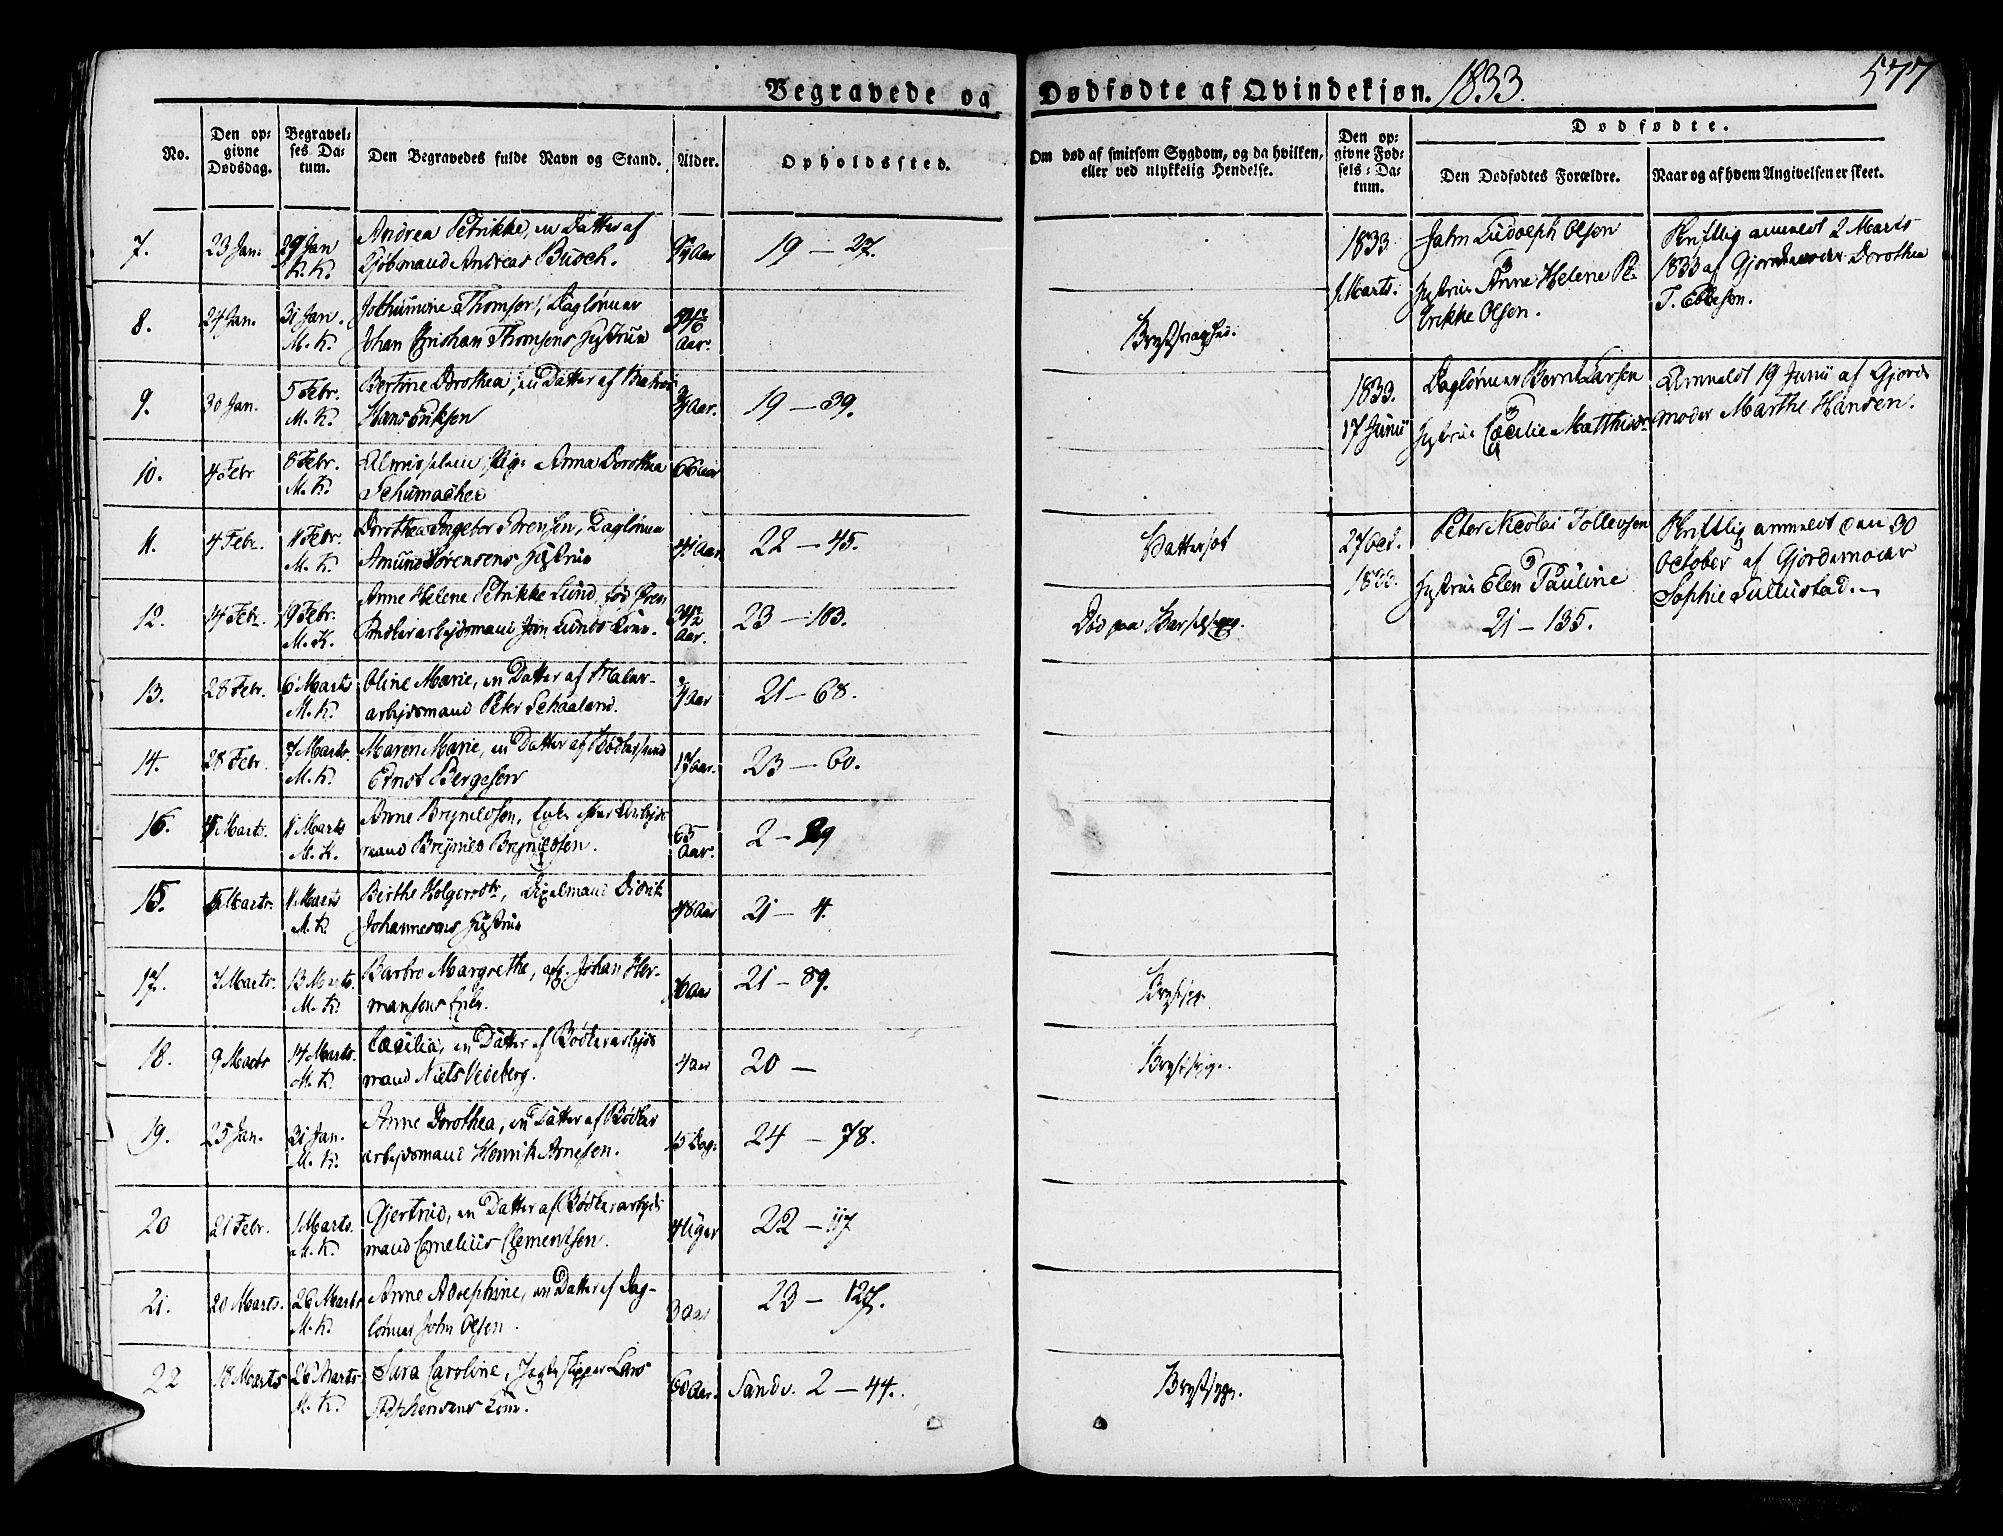 Begravede og Dødfødte af Qvindekjøn. 1833. 577
No.
Den op=
givne
Dødsdag.
Begravel=
ses Da=
tum.
Den Begravedes fulde Navn og Stand.
Alder.
Opholdssted.
Om død af smitsom Sygdom, og da hvilken,
eller ved ulykkelig Hendelse.
Den op=
givne Fød=
sels=Da=
tum.
Dødfødte.
Den Dødfødtes Forældre.
Naar og af hvem Angivelsen er skeet.
7. 23 Jan. 29 Jan
K. K.
Andrea Petrikke, en Datter af
Andreas Busch.
Aar
19 — 27.
8. 24 Jan. 31 Jan.
M. K.
Thomsen, Daglønner
Johan Christian Thomsens Hustrue
Aar.
9. 30 Jan. 5 Febr.
M. K.
Bertine Dorothea, en Datter af
Hans Eriksen
Aar.
19 — 39.
10. 4 Febr 8 Febr.
M. K.
Anna Dorothea
Schumacher
66 Aar
11. 4 Febr. 11 Febr.
M. K.
Dorothea Ingebor Sørensen, Daglønner
Amund Sørensens Hustrue
41 Aar
22 — 45.
12. 14 Febr. 19 Febr.
M. K.
Anne Helene Petrikke Lund, fød
Bødkerarbejdsmand Jan Lunds Kone.
Aar.
23 — 103.
Død paa Barselseng.
13. 28 Febr. 6 Marts
M. K.
Oline Marie, en Datter af Maler-
arbejdsmand Peter Schaaland.
Aar
21 — 68.
14. 28 Febr. 7 Marts.
M. K.
Maren Marie, en Datter af Bødkersvend
Ernst Bergesen
17 Aar.
23 — 60.
16. 4 Marts. 11 Marts
M. K.
Anne Brynildsen, Enke efter Arbejds
mand Brynild Brynildsen.
65
Aar.
2 — 29
15. 5 Marts. 11 Marts
M. K.
Berthe Holgersdtr, Didrik
Johannesens Hustrue
48 Aar
21 — 4.
17. 7 Marts. 13 Marts.
M. K.
Barbro Margrethe, afg. Johan Her-
mansens Enke.
Aar
21 — 89.
Brystsyge
18. 9 Marts 14 Marts.
M. K.
Cæcilia, en Datter af Bødkerarbejds
mand Niels Vedeberg.
4 Aar
20 —
Brystsyge.
19. 25 Jan. 31 Jan.
M. K.
Anne Dorothea, en Datter af Bødker
arbejdsmand Henrik Arnesen.
15 Dag.
24 — 78.
20 21 Febr. 1 Marts.
M. K.
Gjertrud, en Datter af Bødkerarbejds
mand Cornelius Clementsen.
4 Uger
22 — 117
21. 20 Marts. 26 Marts
M. K.
Anne Adolphine, en Datter af Dag-
lønner John Olsen.
3 Aar
23 — 127.
22 18 Marts 26 Marts
M. K.
Sara Caroline, Jagteskipper Lars
Stephensens Kone.
60 Aar.
Sandv. 2 — 44.
Brystsyge.
1833
1 Marts.
John Ludolph Olsen
Hustrue Anne Helene Pe-
trikke Olsen.
Skriftlig anmeldt 2 Marts
1833 af Gjordemoder Dorothea
T. Ebbesen.
1833.
17 Junii
Daglønner Bernt Larsen
Hustrue Cæcilie Matthisdr.
Anmeldt 19 Junii af Gjorde
moder Marthe Hansen.
27 Oct.
1833.
Peter Nicolai Tollevsen
Hustrue Elen Pauline
21 — 135.
Skriftlig anmeldt den 30
October af Gjordemoder
Sophie Tullustad.